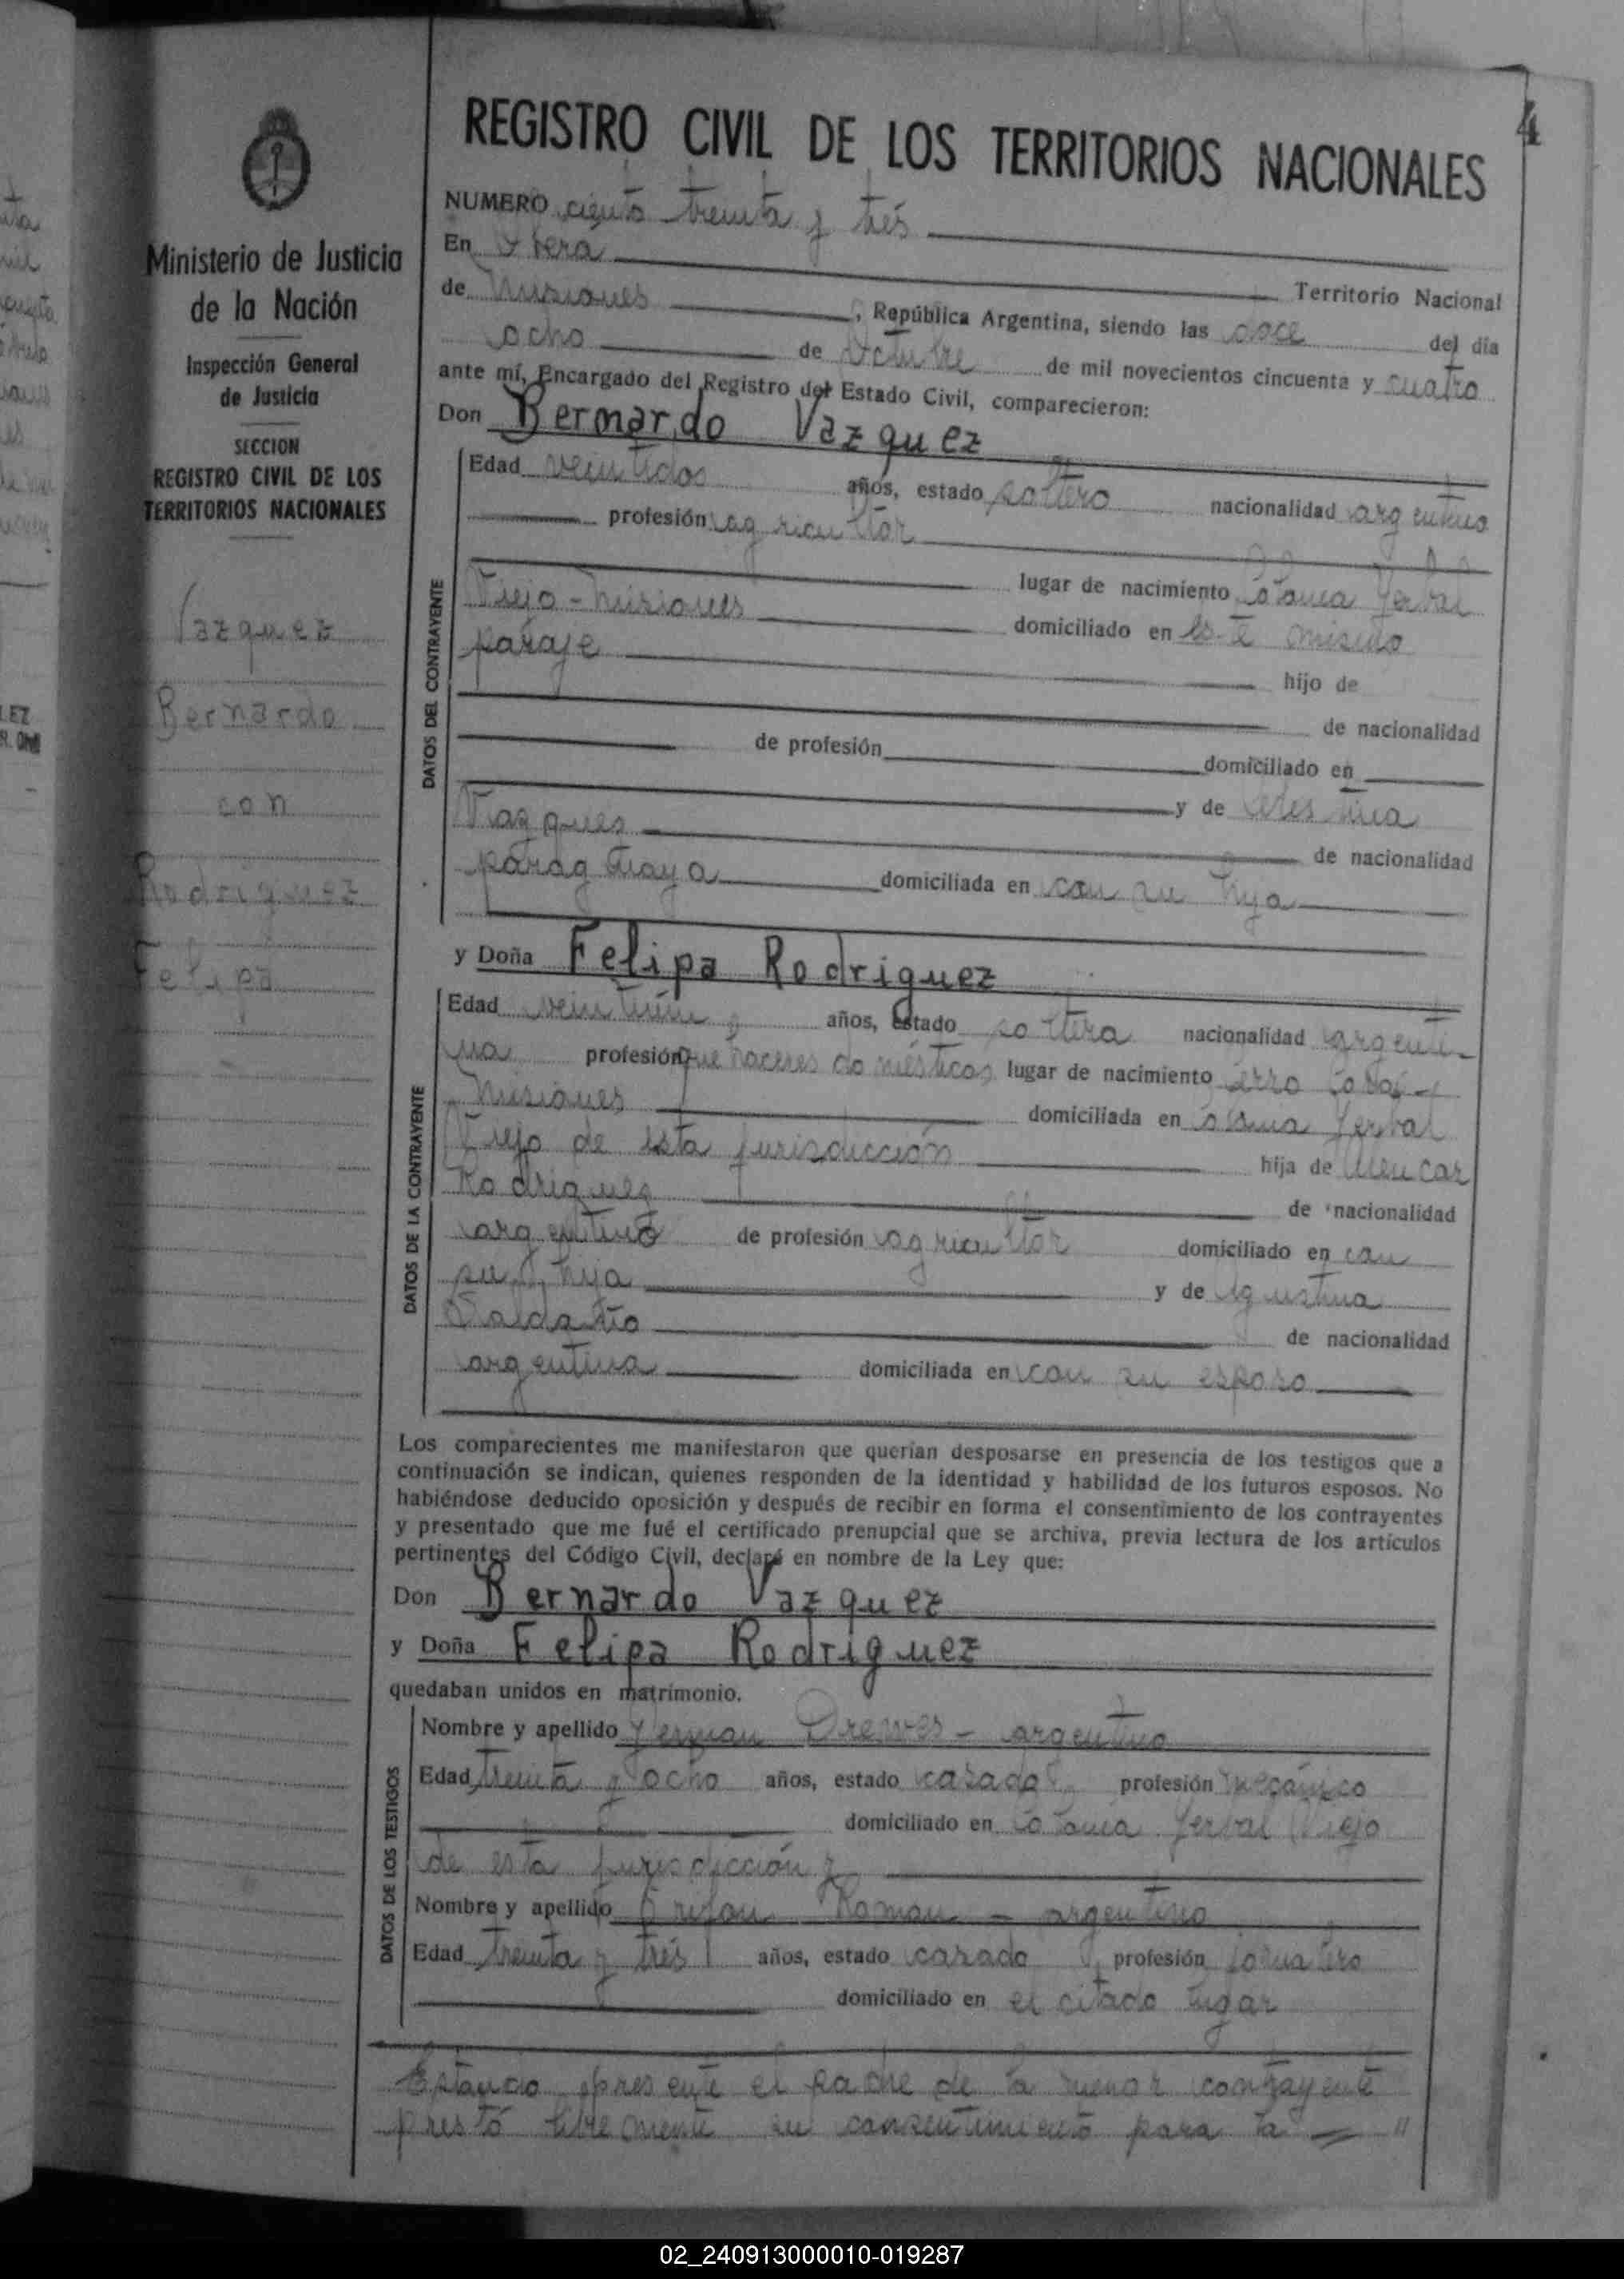 4
REGISTRO CIVIL DE LOS TERRITORIOS NACIONALES
Ministerio de Justicia
de la Nación
Inspección General
de Justicia
SECCION
REGISTRO CIVIL DE LOS
TERRITORIOS NACIONALES
Vazquez
Bernardo
con
Rodriguez
Felipa
NUMERO ciento treinta y trés
En Obera
Territorio Nacional
de Misiones, República Argentina, siendo las doce del día
ocho de Octubre de mil novecientos cincuenta y cuatro
ante mí, Encargado del Registro del Estado Civil, comparecieron:
Don Bernardo Vazquez
DATOS DEL CONTRAYENTE
Edad veintidos años, estado soltero nacionalidad argentino
profesión agricultor
lugar de nacimiento Colonia Yerbal
Viejo - Misiones domiciliado en este mismo
paraje hijo de
de nacionalidad
de profesión domiciliado en
y de Celestina
Vazques de nacionalidad
paraguaya domiciliada en con su hijo
y Doña Felipa Rodriguez
DATOS DE LA CONTRAYENTE
Edad veintiún años, estado soltera nacionalidad argenti-
na profesión quehaceres domésticos lugar de nacimiento Cerro Corá -
Misiones domiciliada en Colonia Yerbal
Viejo de esta jurisdicción hija de
Rodriguez de nacionalidad
argentino de profesión agricultor domiciliado en con
su hija y de Agustina
de nacionalidad
argentina domiciliada en con su esposo
Los comparecientes me manifestaron que querían desposarse en presencia de los testigos que a
continuación se indican, quienes responden de la identidad y habilidad de los futuros esposos. No
habiéndose deducido oposición y después de recibir en forma el consentimiento de los contrayentes
y presentado que me fué el certificado prenupcial que se archiva, previa lectura de los artículos
pertinentes del Código Civil, declaré en nombre de la Ley que:
Don Bernardo Vazquez
y Doña Felipa Rodriguez
quedaban unidos en matrimonio.
DATOS DE LOS TESTIGOS
Nombre y apellido German Drewes - argentino
Edad treinta y ocho años, estado casado profesión mecánico
domiciliado en Colonia Yerbal Viejo
de esta jurisdicción y
Nombre y apellido Roman - argentino
Edad treinta y trés años, estado casado profesión jornalero
domiciliado en el citado lugar
Estando presente el padre de la menor contrayente
prestó libremente su consentimiento para la = "
02_240913000010-019287